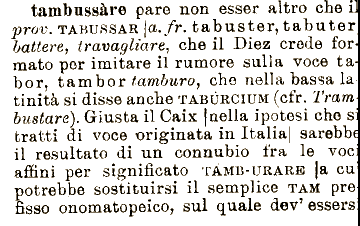 tambussàre pare non esser altro che il
prov. TABUSSAR [a. fr. tabuster, tabuter
battere, travagliare, che il Diez crede for-
mato per imitare il rumore sulla voce ta-
bor, tambor tamburo, che nella bassa la-
tinità si disse anche TABÙRCIUM (cfr. Tram-
bustare). Giusta il Caix [nella ipotesi che si
tratti di voce originata in Italia] sarebbe
il resultato di un connubio fra le voci
affini per significato TAMB-URARE [a cu
potrebbe sostituirsi il semplice TAM pre-
fisso onomatopeico, sul quale dev' essersi